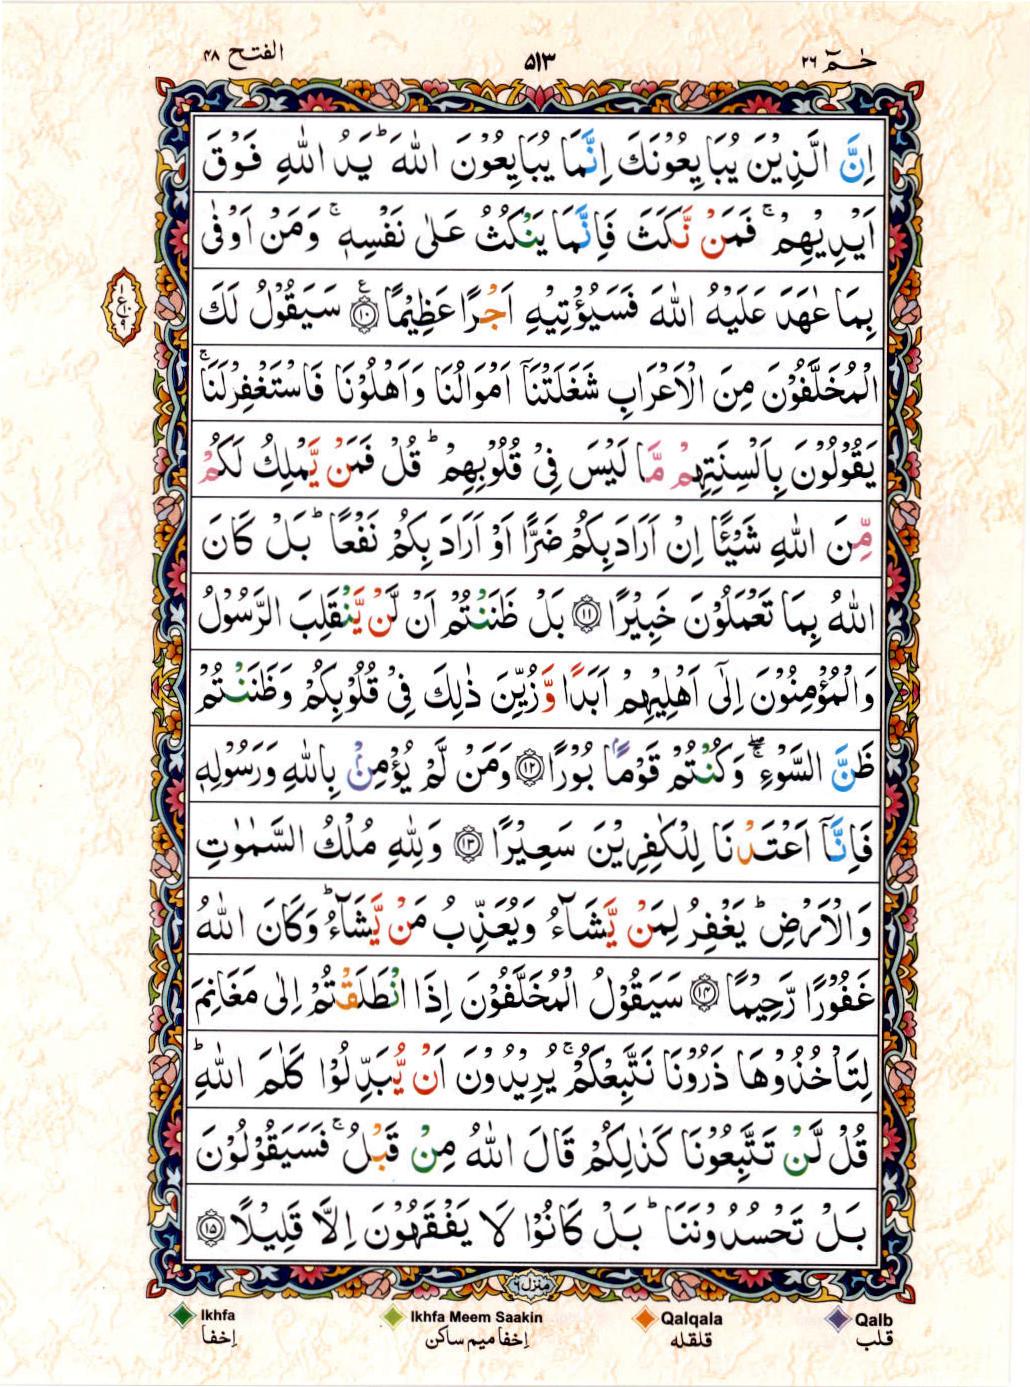 الفتح ۴۸
۵۱۳
حٰمٓ ۲۶
اِنَّ الَّذِيْنَ يُبَايِعُوْنَكَ اِنَّمَا يُبَايِعُوْنَ اللّٰهَ ؕ يَدُ اللّٰهِ فَوْقَ
اَيْدِيْهِمْ ۚ فَمَنْ نَّكَثَ فَاِنَّمَا يَنْكُثُ عَلٰى نَفْسِهٖ ۚ وَمَنْ اَوْفٰى
بِمَا عٰهَدَ عَلَيْهُ اللّٰهَ فَسَيُؤْتِيْهِ اَجْرًا عَظِيْمًا ۧ ﴿۱۰﴾ سَيَقُوْلُ لَكَ
الْمُخَلَّفُوْنَ مِنَ الْاَعْرَابِ شَغَلَتْنَاۤ اَمْوَالُنَا وَاَهْلُوْنَا فَاسْتَغْفِرْلَنَا ۚ
يَقُوْلُوْنَ بِاَلْسِنَتِهِمْ مَّا لَيْسَ فِيْ قُلُوْبِهِمْ ؕ قُلْ فَمَنْ يَّمْلِكُ لَكُمْ
مِّنَ اللّٰهِ شَيْـًٔا اِنْ اَرَادَ بِكُمْ ضَرًّا اَوْ اَرَادَ بِكُمْ نَفْعًا ؕ بَلْ كَانَ
اللّٰهُ بِمَا تَعْمَلُوْنَ خَبِيْرًا ﴿۱۱﴾ بَلْ ظَنَنْتُمْ اَنْ لَّنْ يَّنْقَلِبَ الرَّسُوْلُ
وَالْمُؤْمِنُوْنَ اِلٰۤى اَهْلِيْهِمْ اَبَدًا وَّزُيِّنَ ذٰلِكَ فِيْ قُلُوْبِكُمْ وَظَنَنْتُمْ
ظَنَّ السَّوْءِ ۖۚ وَكُنْتُمْ قَوْمًاۢ بُوْرًا ﴿۱۲﴾ وَمَنْ لَّمْ يُؤْمِنْۢ بِاللّٰهِ وَرَسُوْلِهٖ
فَاِنَّاۤ اَعْتَدْنَا لِلْكٰفِرِيْنَ سَعِيْرًا ﴿۱۳﴾ وَلِلّٰهِ مُلْكُ السَّمٰوٰتِ
وَالْاَرْضِ ؕ يَغْفِرُ لِمَنْ يَّشَآءُ وَيُعَذِّبُ مَنْ يَّشَآءُ ؕ وَكَانَ اللّٰهُ
غَفُوْرًا رَّحِيْمًا ﴿۱۴﴾ سَيَقُوْلُ الْمُخَلَّفُوْنَ اِذَا انْطَلَقْتُمْ اِلٰى مَغَانِمَ
لِتَاْخُذُوْهَا ذَرُوْنَا نَتَّبِعْكُمْ ۚ يُرِيْدُوْنَ اَنْ يُّبَدِّلُوْا كَلٰمَ اللّٰهِ ؕ
قُلْ لَّنْ تَتَّبِعُوْنَا كَذٰلِكُمْ قَالَ اللّٰهُ مِنْ قَبْلُ ۚ فَسَيَقُوْلُوْنَ
بَلْ تَحْسُدُوْنَنَا ؕ بَلْ كَانُوْا لَا يَفْقَهُوْنَ اِلَّا قَلِيْلًا ﴿۱۵﴾
منزل ۶
Ikhfa
اِخفا
Ikhfa Meem Saakin
اِخفا میم ساکن
Qalqala
قلقله
Qalb
قلب